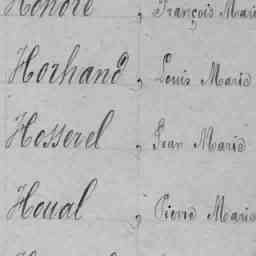 Honoré, François Marie
Horhand, Louis Marie
Hosserel, Jean Marie
Houal, Pierre Marie